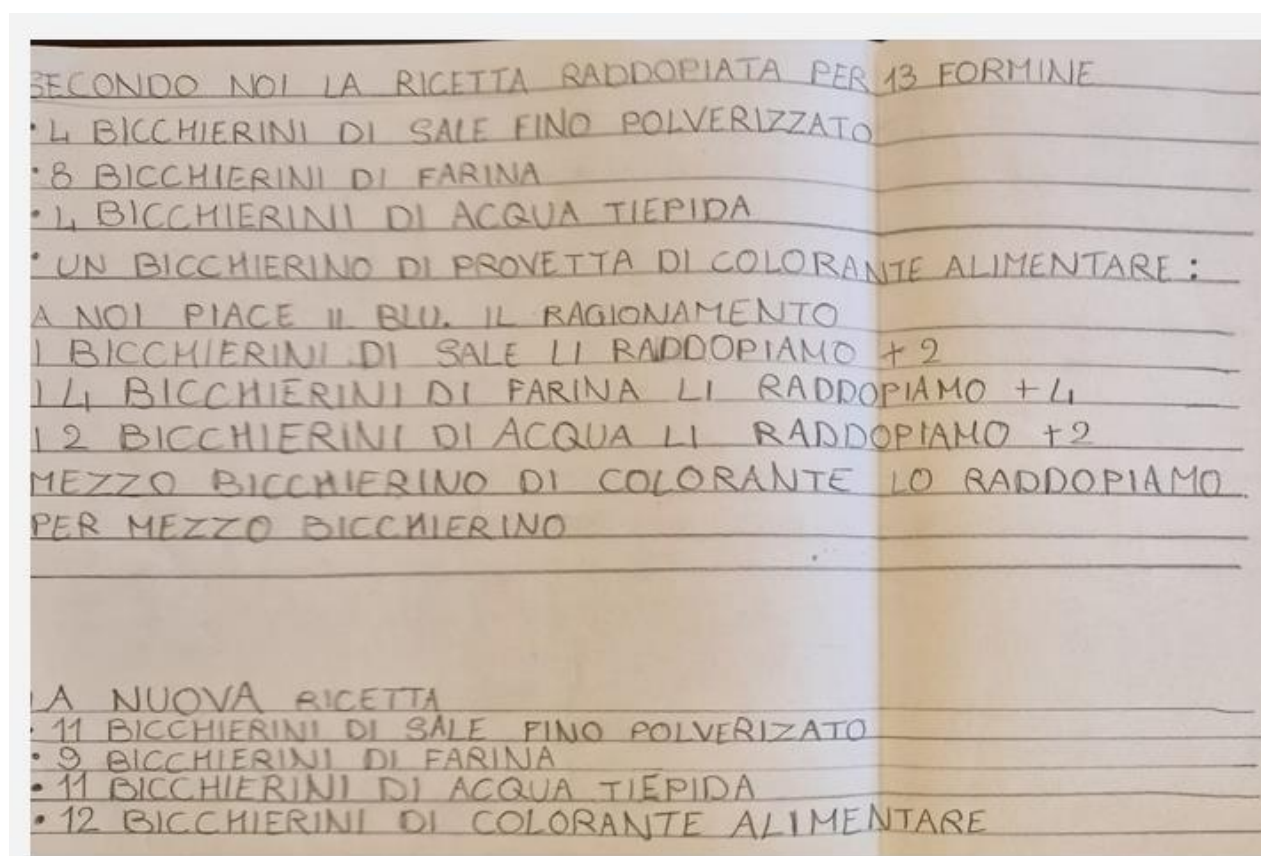 SECONDO NOI LA RICETTA RADDOPIATA PER 13 FORMINE
• 4 BICCHIERINI DI SALE FINO POLVERIZZATO
• 8 BICCHIERINI DI FARINA
• 4 BICCHIERINI DI ACQUA TIEPIDA
• UN BICCHIERINO DI PROVETTA DI COLORANTE ALIMENTARE :
A NOI PIACE IL BLU. IL RAGIONAMENTO
I BICCHIERINI DI SALE LI RADDOPIAMO + 2
I 4 BICCHIERINI DI FARINA LI RADDOPIAMO + 4
I 2 BICCHIERINI DI ACQUA LI RADDOPIAMO + 2
MEZZO BICCHIERINO DI COLORANTE LO RADDOPIAMO
PER MEZZO BICCHIERINO
LA NUOVA RICETTA
• 11 BICCHIERINI DI SALE FINO POLVERIZATO
• 9 BICCHIERINI DI FARINA
• 11 BICCHIERINI DI ACQUA TIEPIDA
• 12 BICCHIERINI DI COLORANTE ALIMENTARE